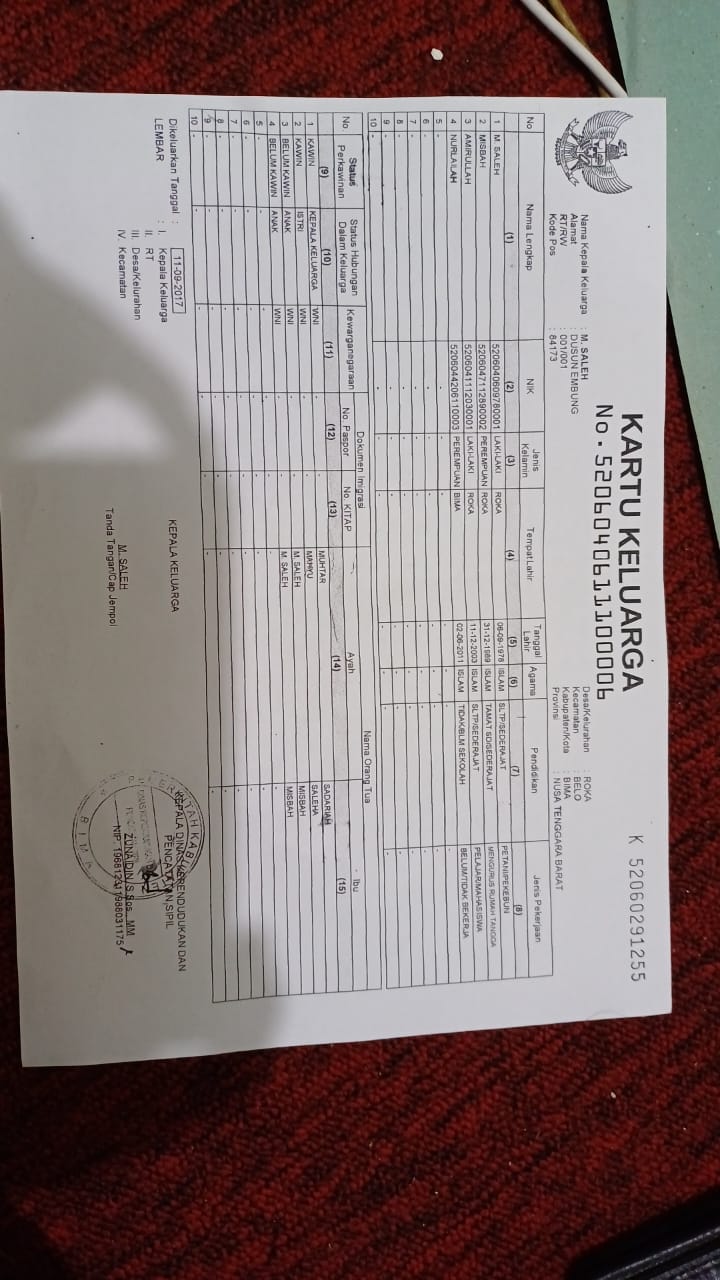 KARTU KELUARGA
No. 5206040611100006
K 52060291255
Nama Kepala Keluarga : M. SALEH
Alamat : DUSUN EMBUNG
RT/RW : 001/001
Kode Pos : 84173
Desa/Kelurahan : ROKA
Kecamatan : BELO
Kabupaten/Kota : BIMA
Provinsi : NUSA TENGGARA BARAT
No Nama Lengkap NIK Jenis Kelamin Tempat Lahir Tanggal Lahir Agama Pendidikan Jenis Pekerjaan
(1) (2) (3) (4) (5) (6) (7) (8)
1 M. SALEH 5206040609780001 LAKI-LAKI ROKA 06-09-1978 ISLAM SLTP/SEDERAJAT PETANI/PEKEBUN
2 MISBAH 5206047112890002 PEREMPUAN ROKA 31-12-1989 ISLAM TAMAT SD/SEDERAJAT MENGURUS RUMAH TANGGA
3 AMIRULLAH 5206041112030001 LAKI-LAKI ROKA 11-12-2003 ISLAM SLTP/SEDERAJAT PELAJAR/MAHASISWA
4 NURLAILAH 5206044206110003 PEREMPUAN BIMA 02-06-2011 ISLAM TIDAK/BLM SEKOLAH BELUM/TIDAK BEKERJA
5 - - - - - - - -
6 - - - - - - - -
7 - - - - - - - -
8 - - - - - - - -
9 - - - - - - - -
10 - - - - - - - -
No. Status Perkawinan Status Hubungan Dalam Keluarga Kewarganegaraan Dokumen Imigrasi Nama Orang Tua
No. Paspor No. KITAP Ayah Ibu
(9) (10) (11) (12) (13) (14) (15)
1 KAWIN KEPALA KELUARGA WNI - - MUHTAR SADARIAH
2 KAWIN ISTRI WNI - - MAHYU SALEHA
3 BELUM KAWIN ANAK WNI - - M. SALEH MISBAH
4 BELUM KAWIN ANAK WNI - - M. SALEH MISBAH
5 - - - - - - -
6 - - - - - - -
7 - - - - - - -
8 - - - - - - -
9 - - - - - - -
10 - - - - - - -
Dikeluarkan Tanggal : 11-09-2017
LEMBAR : I. Kepala Keluarga
II. RT
III. Desa/Kelurahan
IV. Kecamatan
KEPALA KELUARGA
M. SALEH
Tanda Tangan/Cap Jempol
KEPALA DINAS KEPENDUDUKAN DAN
PENCATATAN SIPIL
S.Sos., MM
NIP.
BIMA